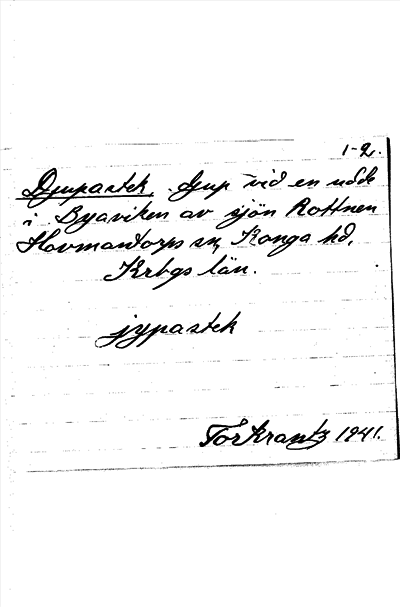 1-2.
Djupastek, djup vid en udde
i Byaviken av sjön Rottnen
Hovmantorps sn, Konga hd,
Krbgs län.
jypastek
Tor Krantz 1941.